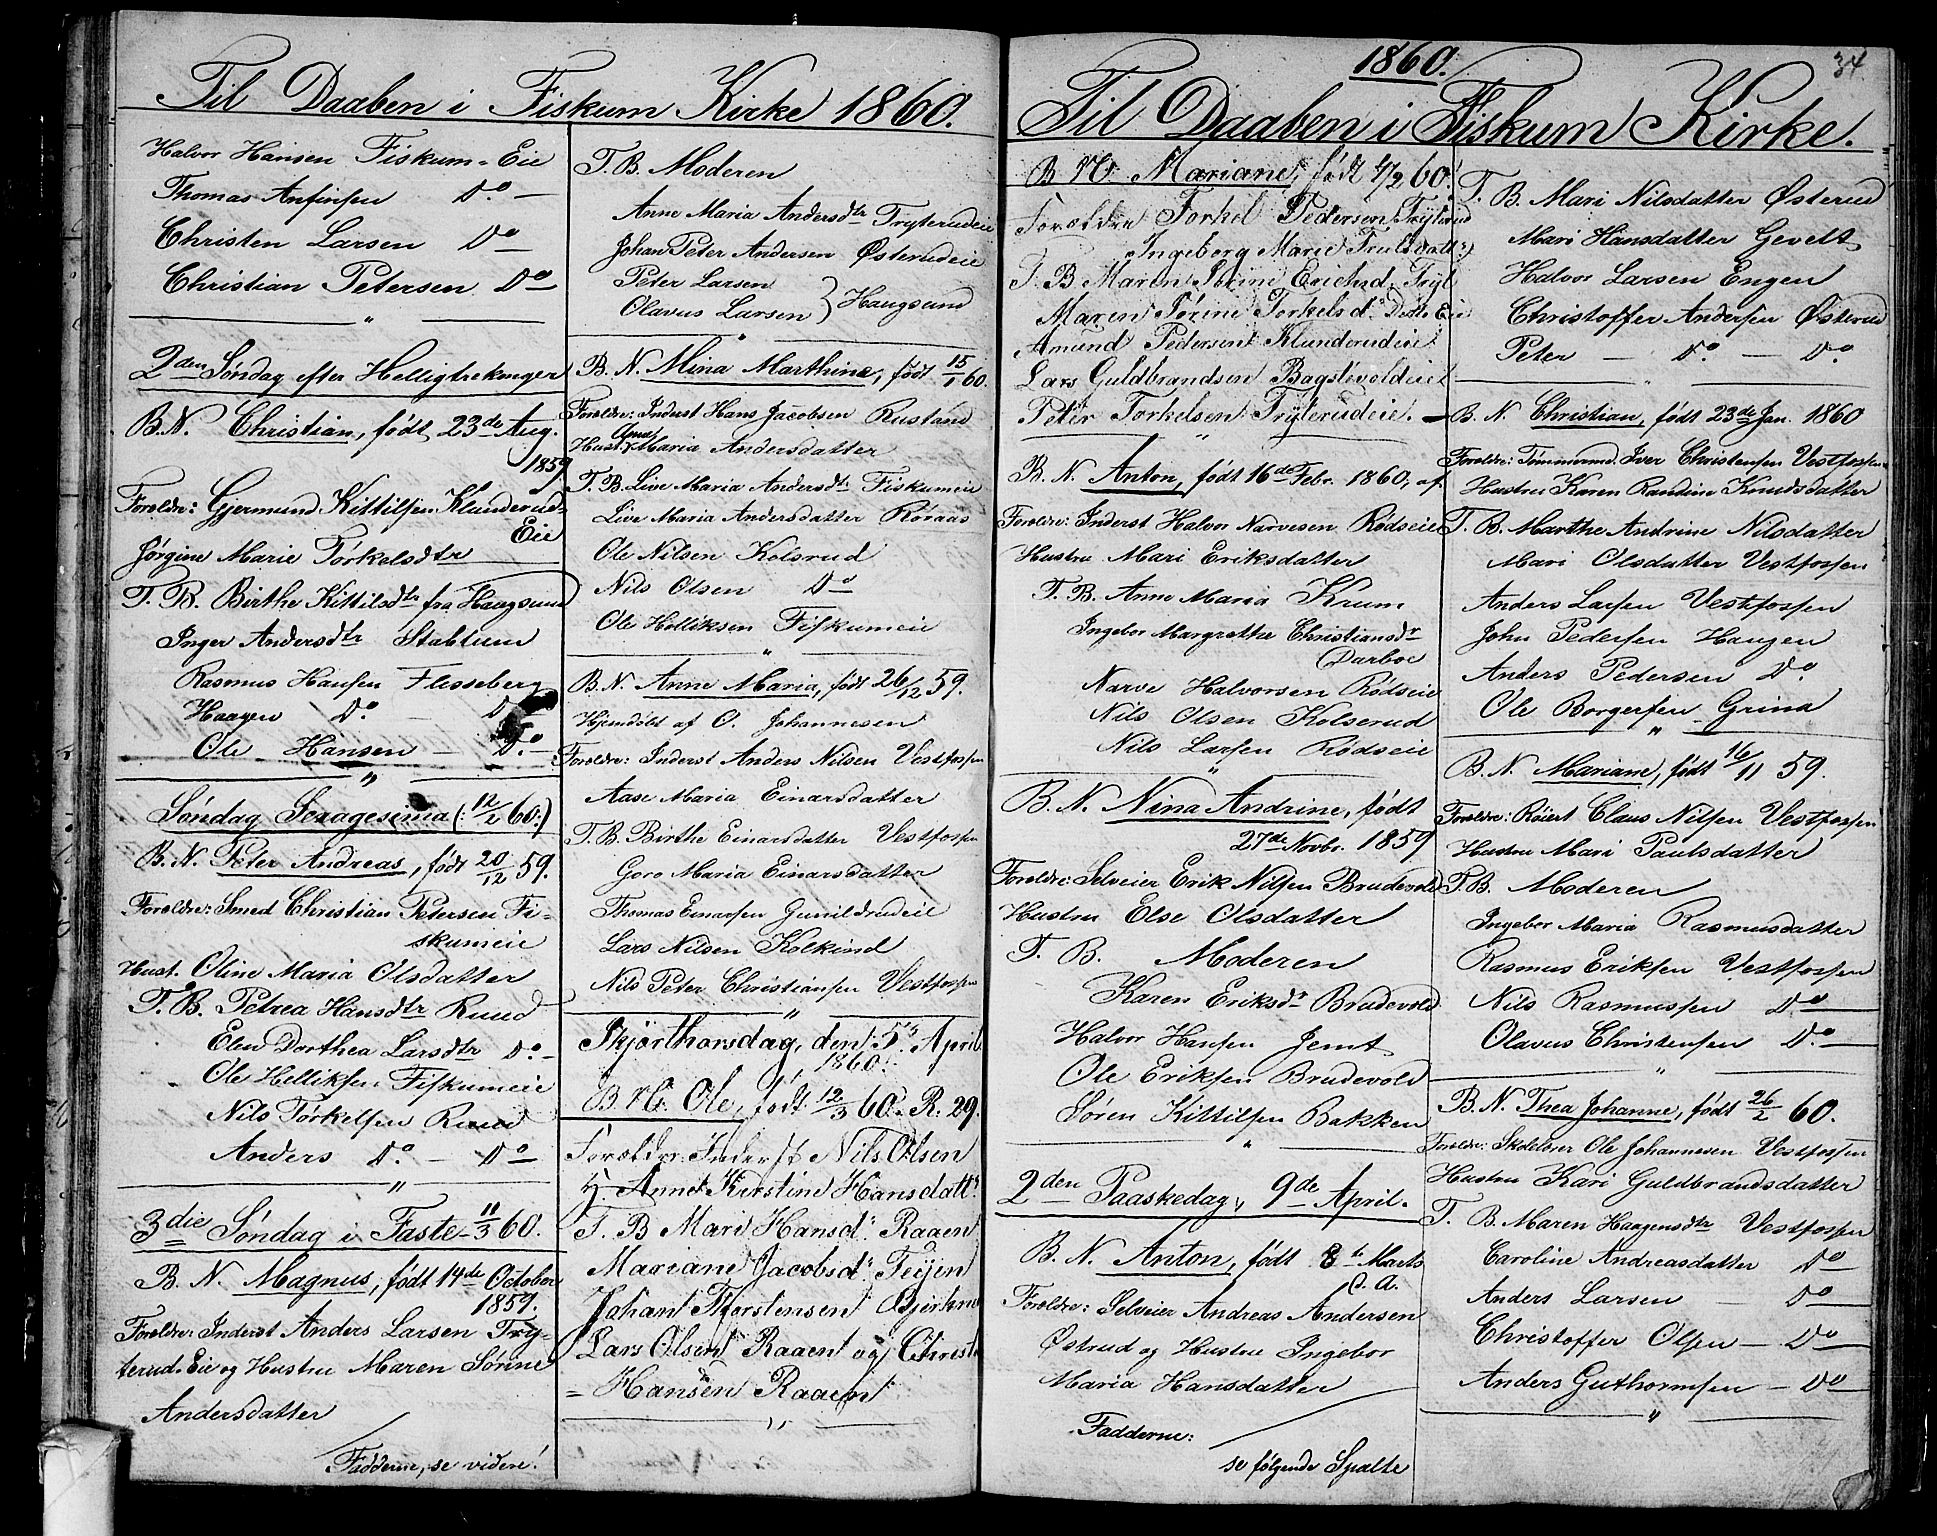 Til Daaben i Fiskum Kirke 1860.
Halvor Hansen Fiskum-Eie
Thomas Anfinsen Do. —
Christen Larsen Do
Christian Petersen Do
"
2den Søndag efter Helligtrekonger
B. N. Christian, født 23de Aug.
1859
Foreldre: Gjermund Kittilsen Klunderud-
Eie
Jørgine Marie Torkelsdtr
T. B. Birthe Kittilsdtr fra Haugsund
Inger Andersdtr Stablum
Rasmus Hansen Flesseberg
Haagen Do. — Do
Ole Hansen — Do. —
"
Søndag Sexagesima (: 12/2 60:)
B. N. Peter Andreas, født 20/12 59.
Foreldre: Smed Christian Petersen Fi-
skumeie
Hust. Oline Maria Olsdatter
T. B. Petrea Hansdtr Ruud
Elen Dorthea Larsdtr Do. —
Ole Helliksen Fiskumeie
Nils Torkelsen Ruud
Anders Do. — Do
"
3die Søndag i Faste 11/3 60.
B. N. Magnus, født 14de October
1859.
Foreldre: Inderst Anders Larsen Try-
terud-Eie og Hustru Maren Sørine
Andersdatter
Fadderne, se videre!
T. B. Moderen
Anne Maria Andersdtr Tryterudeie
Johan Peter Andersen Østerudeie
Peter Larsen
Olavus Larsen } Haugsund
"
B. N. Mina Marthine, født 15/1 60.
Foreldre: Inderst Hans Jacobsen Rustand
Hust. Anne Maria Andersdatter
T. B. Live Maria Andersdtr Fiskumeie
Live Maria Andersdatter Røraas
Ole Nilsen Kolsrud
Nils Olsen Do
Ole Helliksen Fiskumeie
"
B. N. Anne Maria, født 26/12 59.
Hjemdøbt af O. Johannesen
Foreldre: Inderst Anders Nilsen Vestfossen
Aase Maria Einarsdatter
T. B. Birthe Einarsdatter Vestfossen
Goro Maria Einarsdatter
Thomas Einarsen Gunildrudeie
Lars Nilsen Kolkind
Nils Peter Christiansen Vestfossen
"
Skjørthorsdag, den 5te April
1860.
B. N. Ole, født 12/3 60. R. 29.
Foreldre: Inderst Nils Olsen
H. Anne Kirstine Hansdatt:
T. B Mari Hansd: Raaen
Mariane Jacobsd: Teijen
Johan Thorstensen Bjerkne
Lars Olsen Raaen og Christ
= Hansen Raaen
"
1860.
34
Til Daaben i Fiskum Kirke.
B. N. Mariane, født 4/2 60.
Foreldre Torkel Pedersen Trÿterud
Ingeborg Marie Trulsdatt:
T. B Maren Sørine Erichsd. Trÿt
Maren Sørine Torkelsd: Ditto Eie
Amund Pedersen Klunderudeie
Lars Guldbrandsen Bagstevoldeie
Peter Torkelsen Trÿterudeie. —
"
B. N. Anton, født 16de Febr. 1860, af
Foreldre: Inderst Halvor Narvesen Rødseie
Hustru Mari Eriksdatter
T. B. Anne Maria Krum
Ingebor Margrethe Christiansdr
Darboe
Narve Halvorsen Rødseie
Nils Olsen Kolserud
Nils Larsen Rødseie
"
B. N. Nina Andrine, født
27de Novbr. 1859
Foreldre: Selveier Erik Nilsen Brudevold
Hustru Else Olsdatter
T. B. Moderen
Karen Eriksdr Brudevold
Halvor Hansen Jemt
Ole Eriksen Brudevold
Søren Kittilsen Bakken
"
2den Paaskedag, 9de April.
B. N. Anton, født 8te Marts
d. A.
Foreldre: Selveier Andreas Andersen
Østrud og Hustru Ingebor
Maria Hansdatter
Fadderne:
se følgende Spalte
T. B. Mari Nilsdatter Østerud
Mari Hansdatter Gevelt
Halvor Larsen Engen
Christoffer Andersen Østerud
Peter — Do. — Do.
"
B. N. Christian, født 23de Jan. 1860
Foreldre: Tømmermd. Iver Christensen Vestfossen
Hustru Karen Randine Knudsdatter
T. B. Marthe Andrine Nilsdatter
Mari Olsdatter Vestfossen
Anders Larsen Vestfossen
John Pedersen Haugen
Anders Pedersen Do.
Ole Borgersen Grina
"
B. N. Mariane, født 16/11 59.
Foreldre: Røiert Claus Nilsen Vestfossen
Hustru Mari Paulsdatter
T. B. Moderen
Ingebor Maria Rasmusdatter
Rasmus Eriksen Vestfossen
Nils Rasmussen Do. —
Olavus Christensen Do. —
"
B. N. Thea Johanne, født 26/2 60.
Foreldre: Skolelærer Ole Johannesen Vestfossen
Hustru Kari Guldbrandsdatter
T. B. Maren Haagensdtr Vestfossen
Caroline Andreasdatter Do
Anders Larsen — Do
Christoffer Olsen — Do
Anders Guthormsen — Do
"